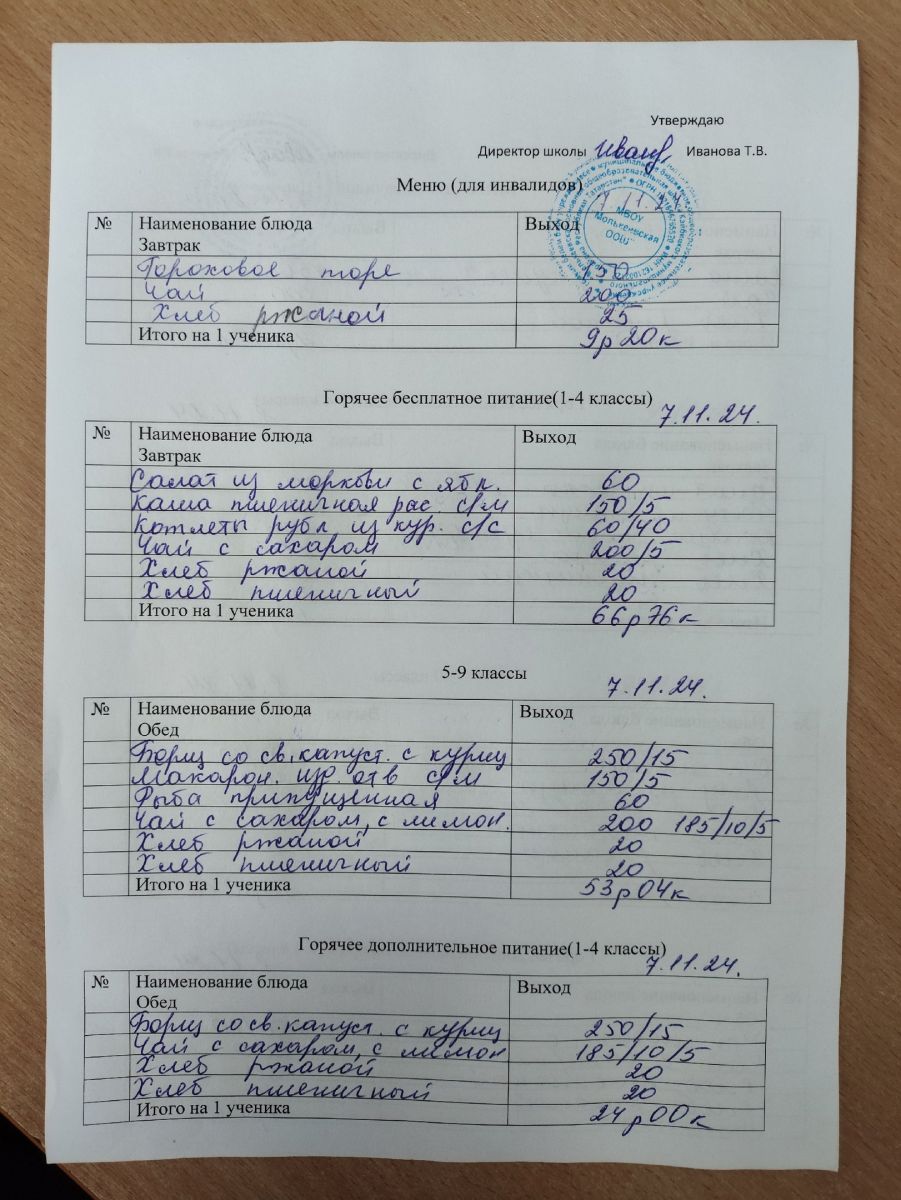 Утверждаю
Директор школы Иванова Т.В.
Меню (для инвалидов)
7.11.24
МБОУ
"Молькеевская
ООШ"
№ Наименование блюда Выход
Завтрак
Гороховое пюре 150
Чай 200
Хлеб ржаной 25
Итого на 1 ученика 9р20к
Горячее бесплатное питание(1-4 классы)
7.11.24.
№ Наименование блюда Выход
Завтрак
Салат из моркови с ябл. 60
Каша пшеничная рас. с/м 150/5
Котлеты рубл. из кур. с/с 60/40
Чай с сахаром 200/5
Хлеб ржаной 20
Хлеб пшеничный 20
Итого на 1 ученика 66р76к
5-9 классы
7.11.24.
№ Наименование блюда Выход
Обед
Борщ со св. капуст. с куриц 250/15
Макарон. изд. отв с/м 150/5
Рыба припущенная 60
Чай с сахаром, с лимон. 200 185/10/5
Хлеб ржаной 20
Хлеб пшеничный 20
Итого на 1 ученика 53р04к
Горячее дополнительное питание(1-4 классы)
7.11.24.
№ Наименование блюда Выход
Обед
Борщ со св. капуст. с куриц 250/15
Чай с сахаром, с лимон 185/10/5
Хлеб ржаной 20
Хлеб пшеничный 20
Итого на 1 ученика 24р00к